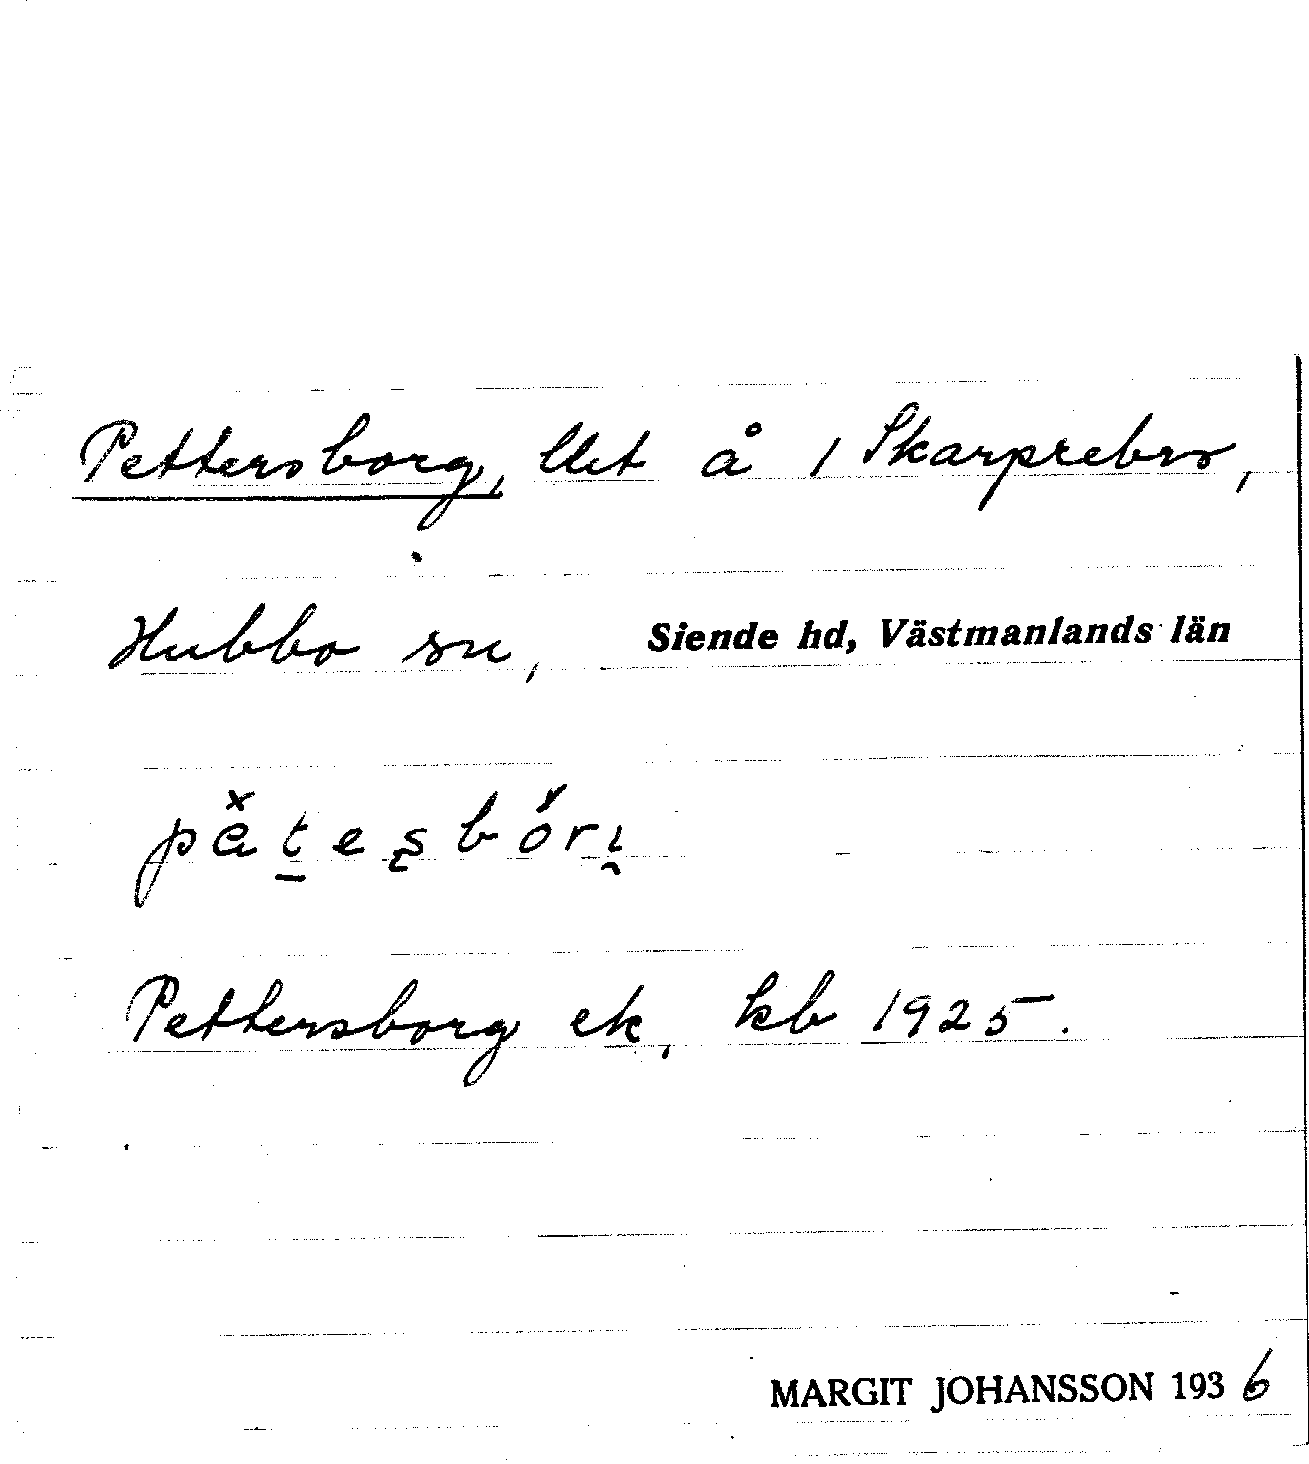 Pettersborg, llet å 1 Skarprebro,
Hubbo sn, Siende hd, Västmanlands län
Pettersborg ek, kb 1925.
MARGIT JOHANSSON 1936